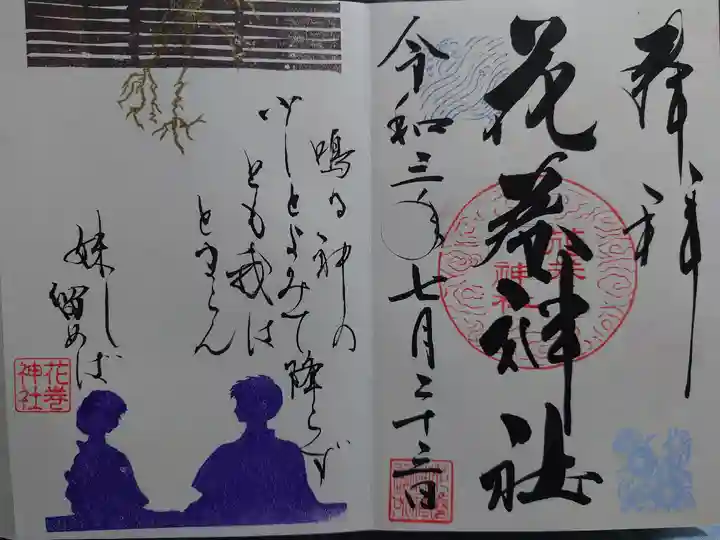 奉拝
花巻神社
花巻神社
令和三年七月二十三日
鳴る神の
少しとよみて降らず
とも我は
とまらん
妹し
留めば
花巻
神社